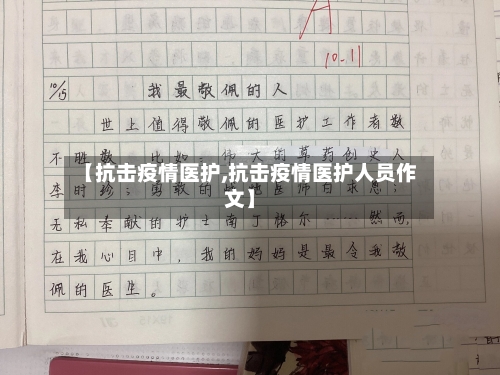 A
10.11
10/15
我最敬佩的人
世上值得敬佩的医护工作者数
不胜数，比如：伟大的草药创史人
【抗击疫情医护,抗击疫情医护人员作
李时珍；勇敢的战地医师白求恩；
文】
无私奉献的护士南丁格尔……然而，
在我心目中，我的妈妈是最令我敬
佩的医生。